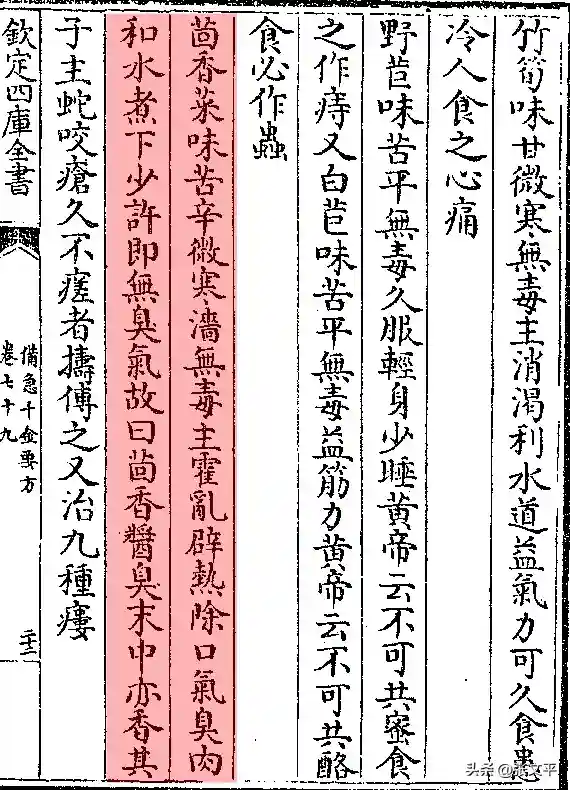 竹筍味甘微寒無毒主消渴利水道益氣力可久食患
冷人食之心痛
野苣味苦平無毒久服輕身少睡黄帝云不可共蜜食
之作痔又白苣味苦平無毒益筋力黄帝云不可共酪
食必作蟲
茴香菜味苦辛微寒濇無毒主霍亂辟熱除口氣臭肉
和水煮下少許即無臭氣故曰茴香醬臭末中亦香其
子主蛇咬瘡久不瘥者擣傅之又治九種瘻
欽定四庫全書
備急千金要方
卷七十九
二十二
头条@張文平